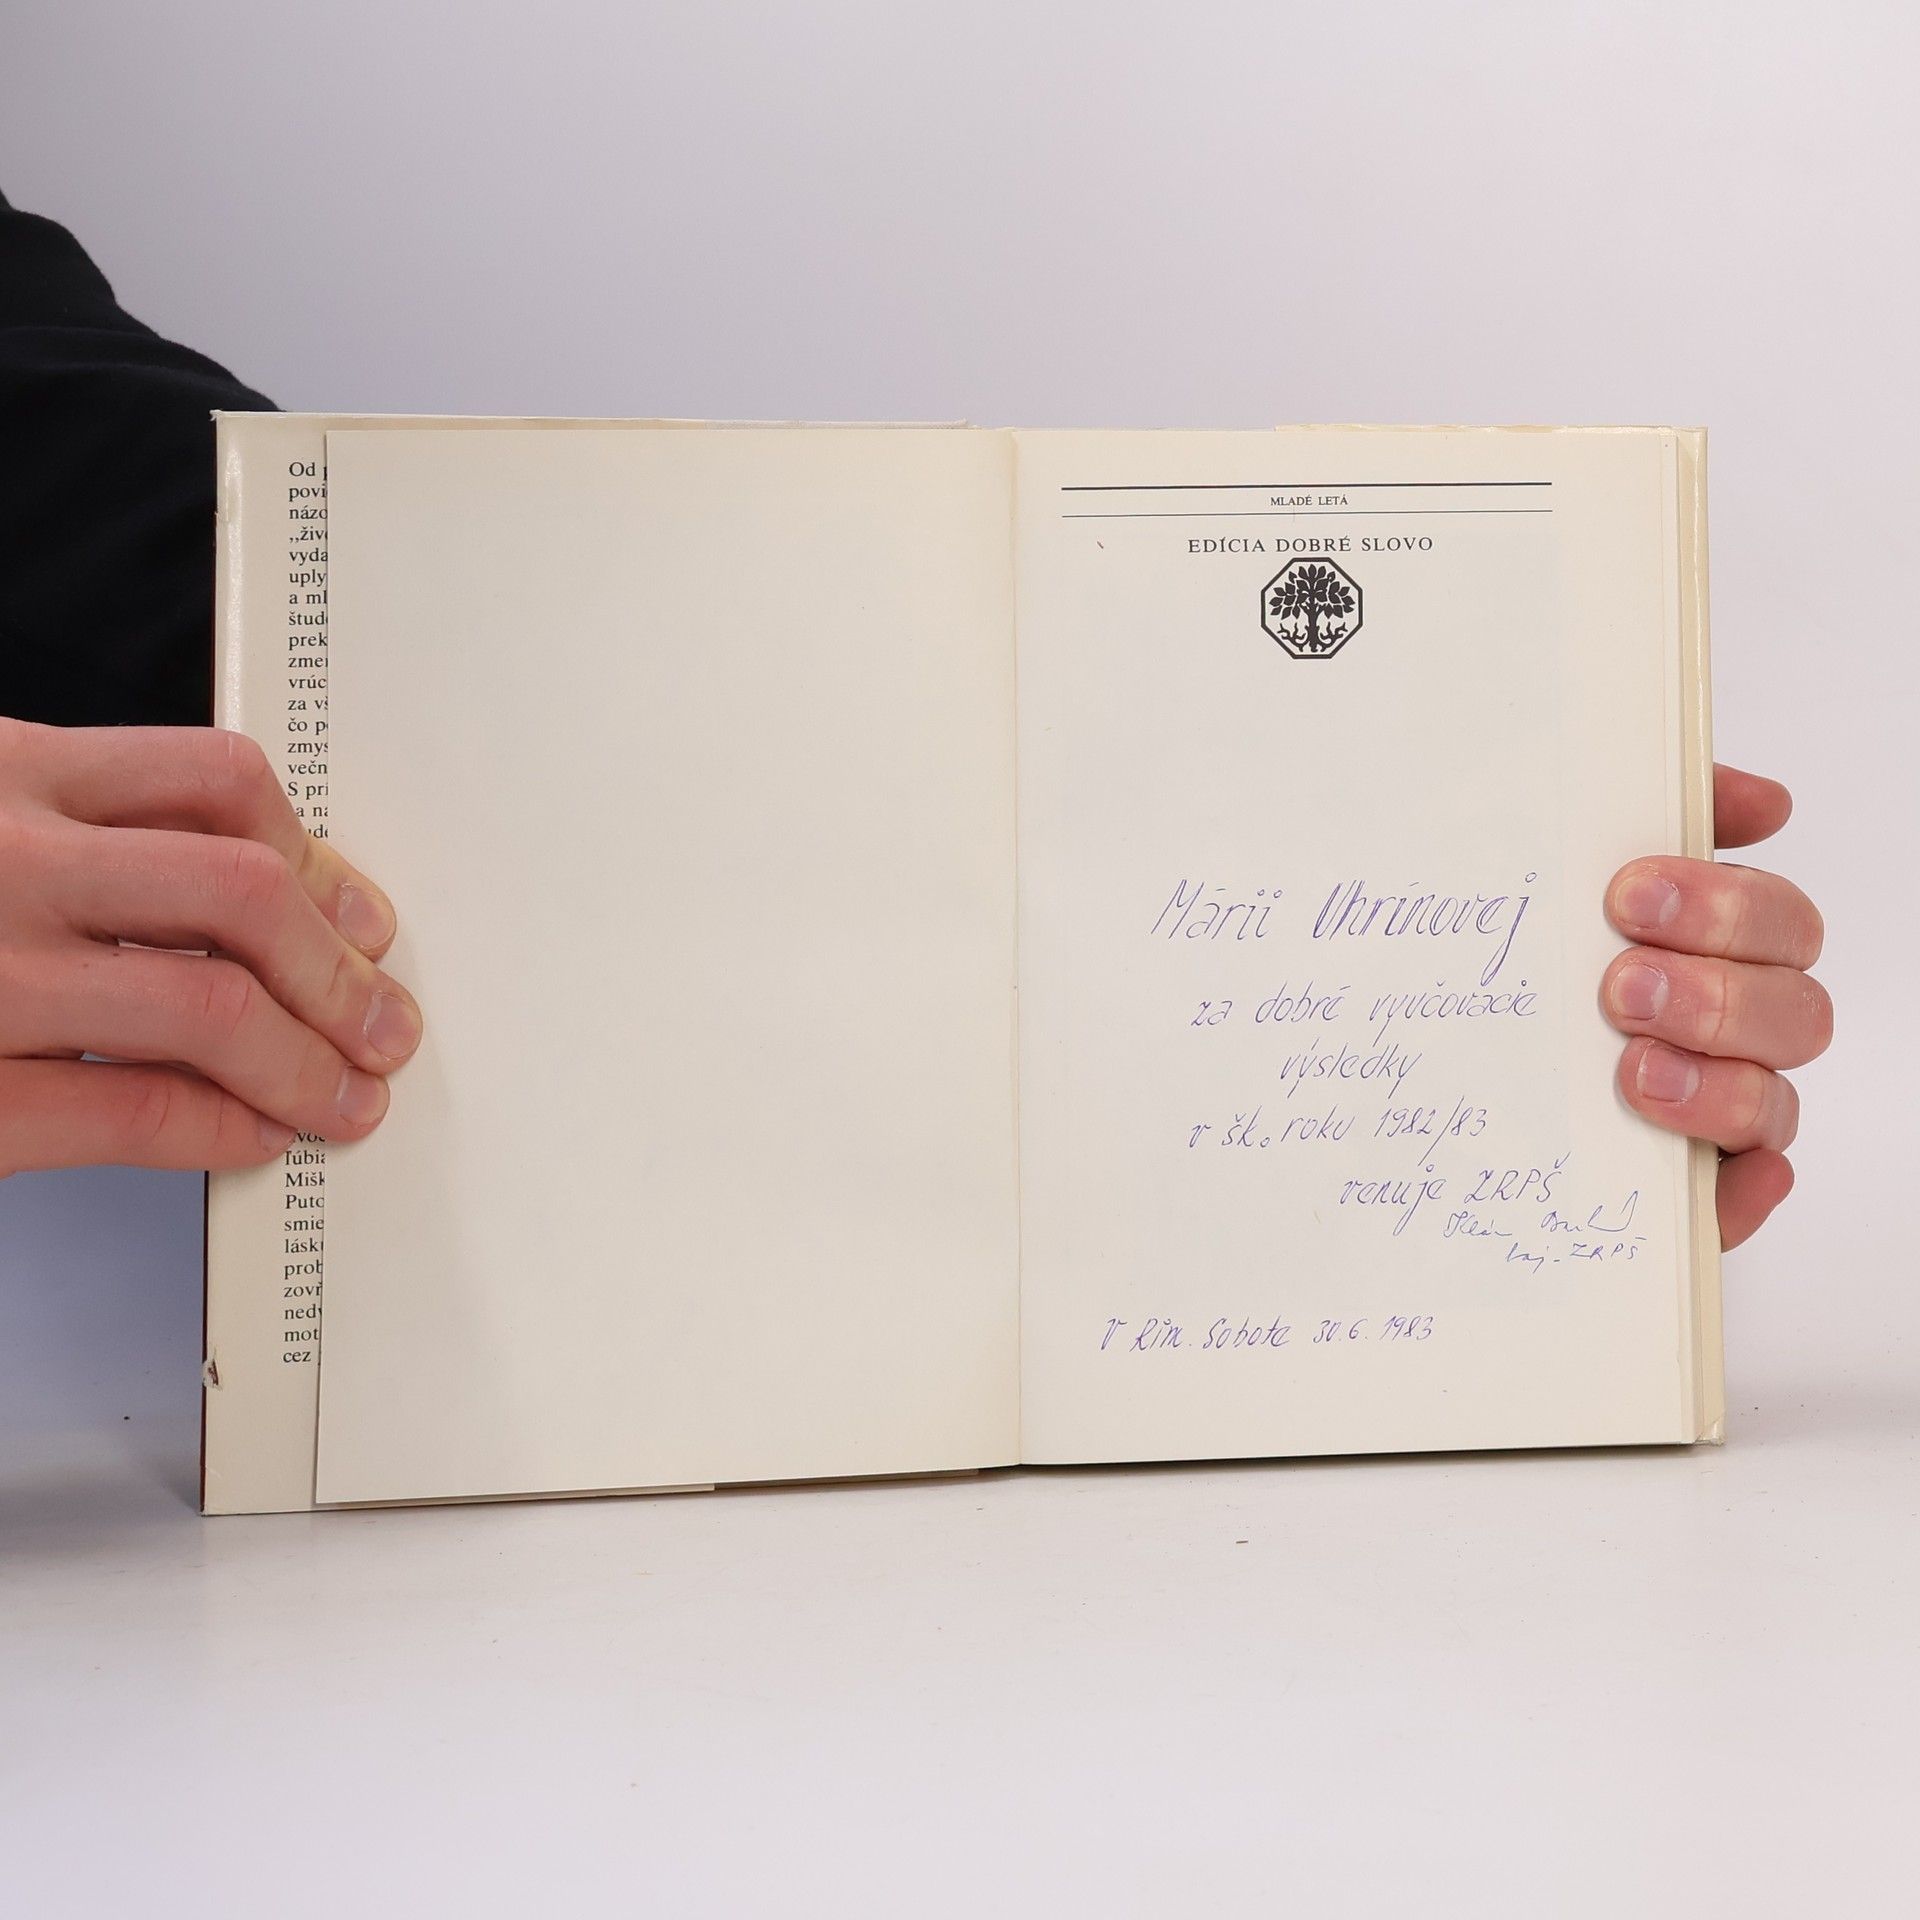 Od
povi
názo
,,živ
vyda
uply
a ml
štud
prek
zme
vrúc
za vš
čo p
zmys
večn
S prí
a na
ude
ľúbia
Mišk
Puto
smie
lásk
prob
zovř
nedv
mot
cez
MLADÉ LETÁ
EDÍCIA DOBRÉ SLOVO
Márii Uhrínovej
za dobré vyučovacie
výsledky
v šk. roku 1982/83
venuje ZRPŠ
ZRPŠ
V Rim. Sobote 30.6.1983